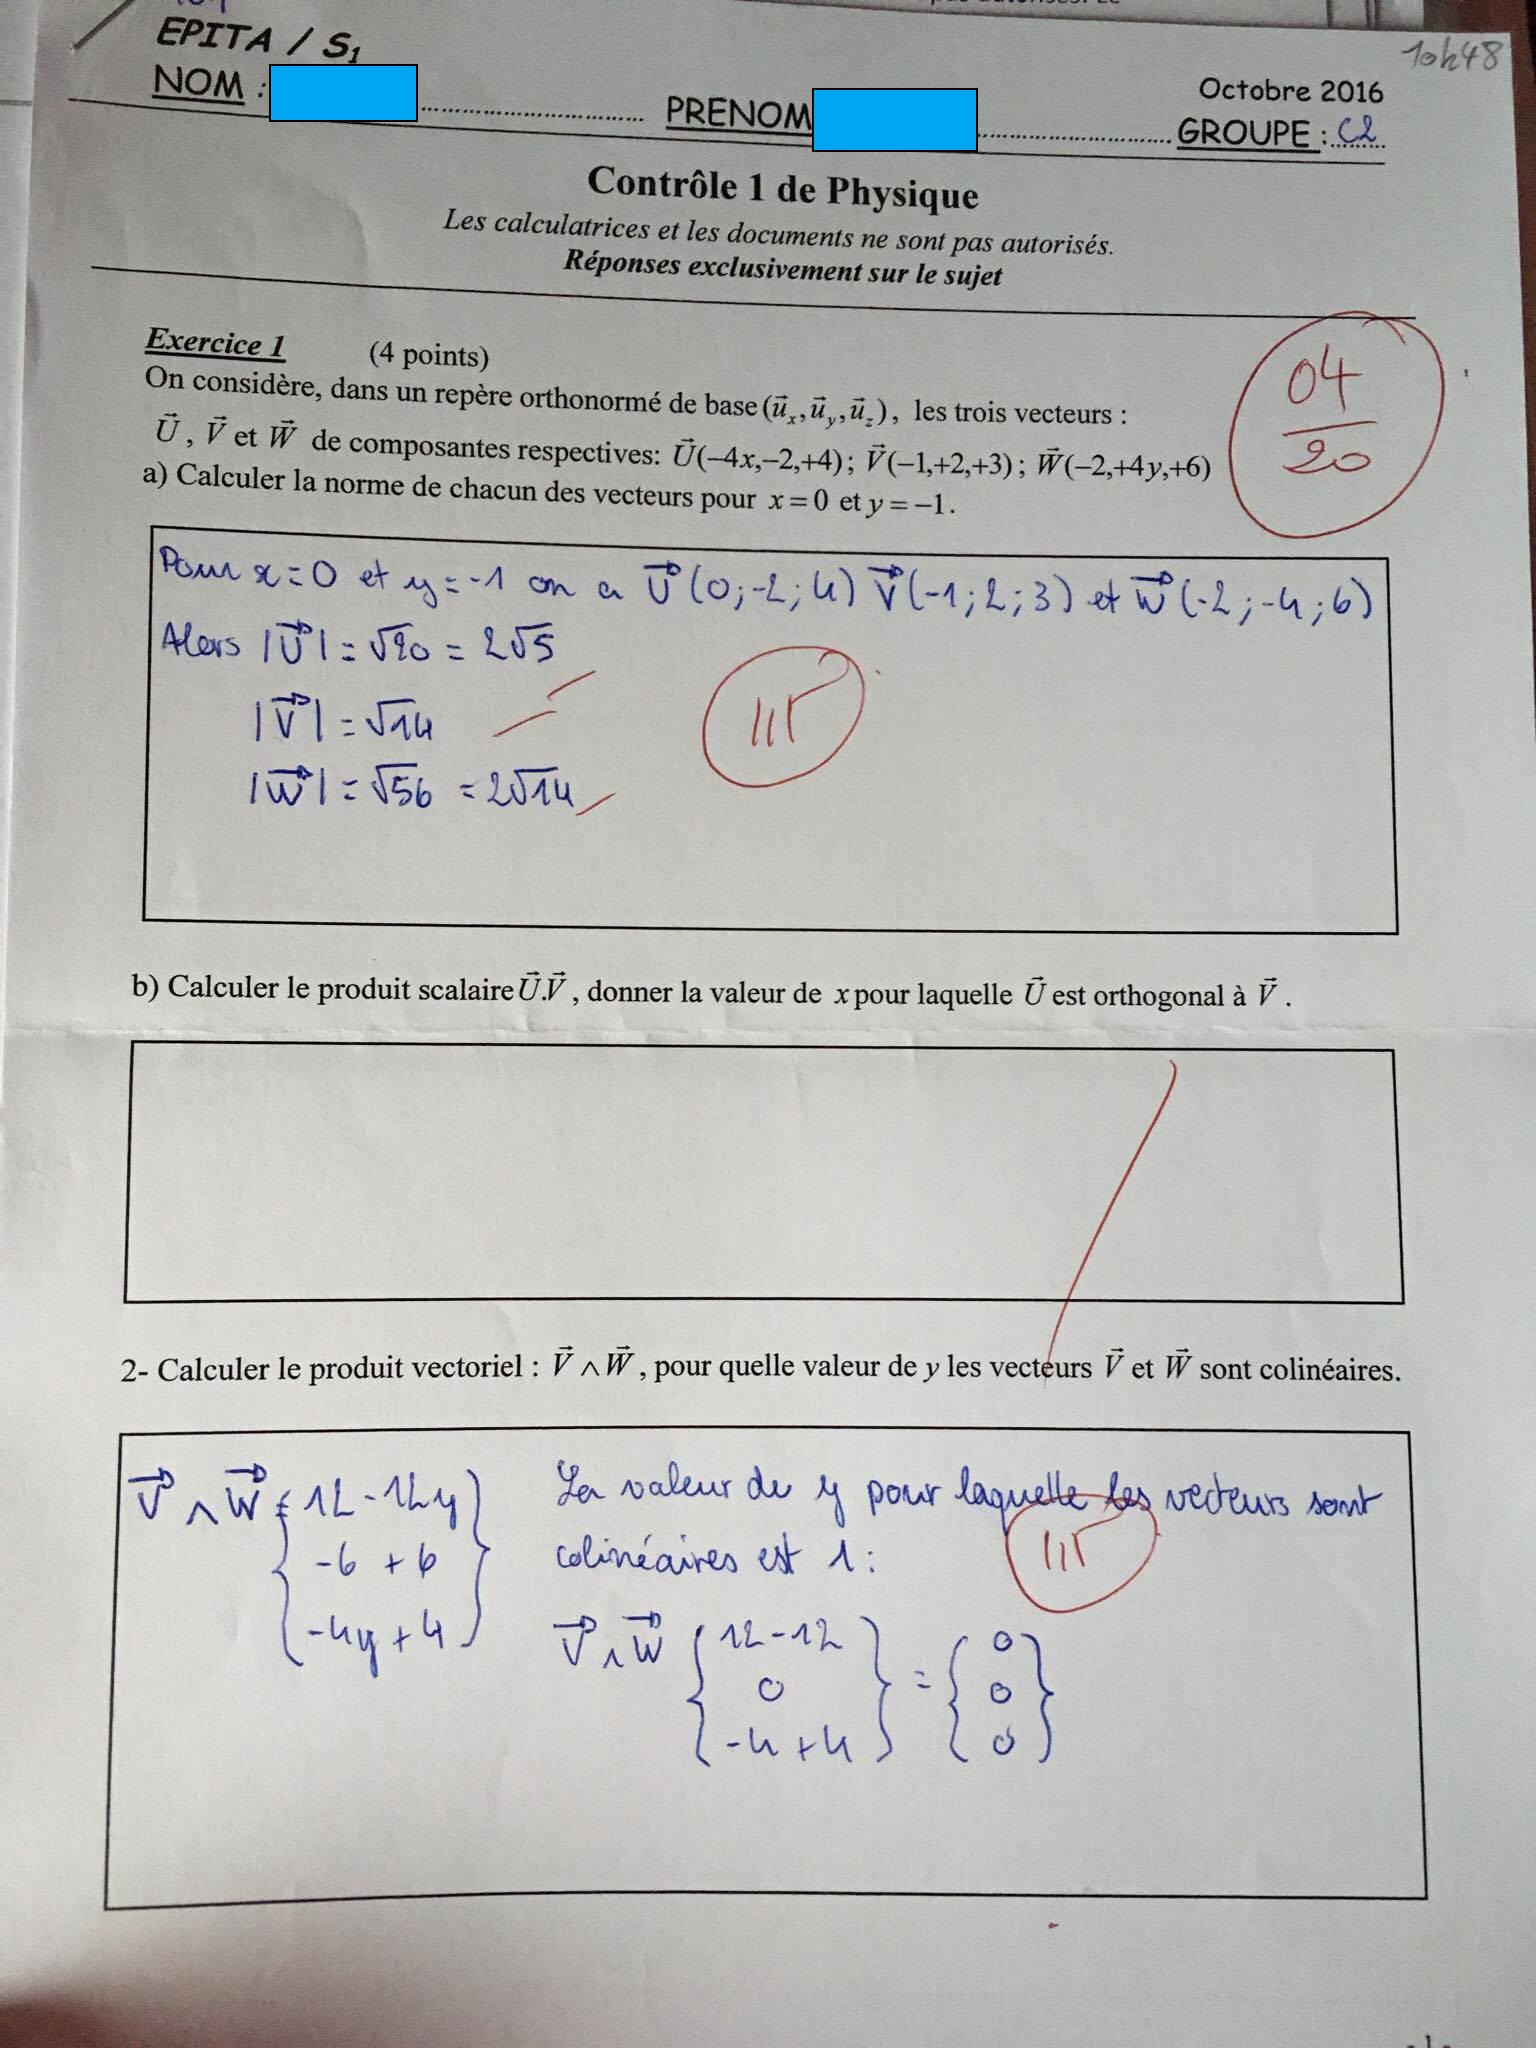 EPITA / S₁
10h48
NOM :
PRENOM
Octobre 2016
GROUPE : C2
Contrôle 1 de Physique
Les calculatrices et les documents ne sont pas autorisés.
Réponses exclusivement sur le sujet
Exercice 1 (4 points)
On considère, dans un repère orthonormé de base (u⃗ₓ, u⃗ᵧ, u⃗_z), les trois vecteurs :
U⃗, V⃗ et W⃗ de composantes respectives: U⃗(–4x,–2,+4) ; V⃗(–1,+2,+3) ; W⃗(–2,+4y,+6)
a) Calculer la norme de chacun des vecteurs pour x = 0 et y = –1.
04
20
Pour x = 0 et y = -1 on a U⃗ (0 ; -2 ; 4) V⃗ (-1 ; 2 ; 3) et W⃗ (-2 ; -4 ; 6)
Alors |U⃗| = √20 = 2√5
|V⃗| = √14
1,5
|W⃗| = √56 = 2√14
b) Calculer le produit scalaire U⃗.V⃗, donner la valeur de x pour laquelle U⃗ est orthogonal à V⃗.
2- Calculer le produit vectoriel : V⃗ ∧ W⃗, pour quelle valeur de y les vecteurs V⃗ et W⃗ sont colinéaires.
V⃗ ∧ W⃗ = { 12 - 12y
-6 + 6
-4y + 4 }
La valeur de y pour laquelle les vecteurs sont
colinéaires est 1 :
1,5
V⃗ ∧ W⃗ { 12 - 12 } = { 0 }
0 0
-4 + 4 0